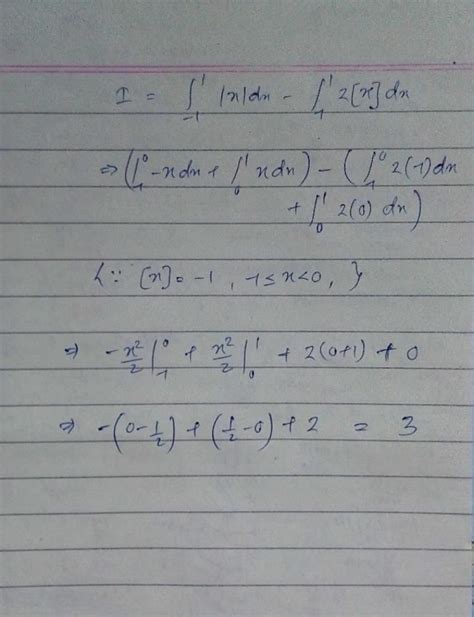 I = ∫_{-1}^{1} |x|dx - ∫_{-1}^{1} 2[x]dx
⇒ (∫_{-1}^{0} -xdx + ∫_{0}^{1} xdx) - (∫_{-1}^{0} 2(-1)dx
+ ∫_{0}^{1} 2(0) dx)
{∵ [x] = -1, -1 ≤ x < 0, }
⇒ -x²/2 |_{-1}^{0} + x²/2 |_{0}^{1} + 2(0+1) + 0
⇒ -(0 - 1/2) + (1/2 - 0) + 2 = 3